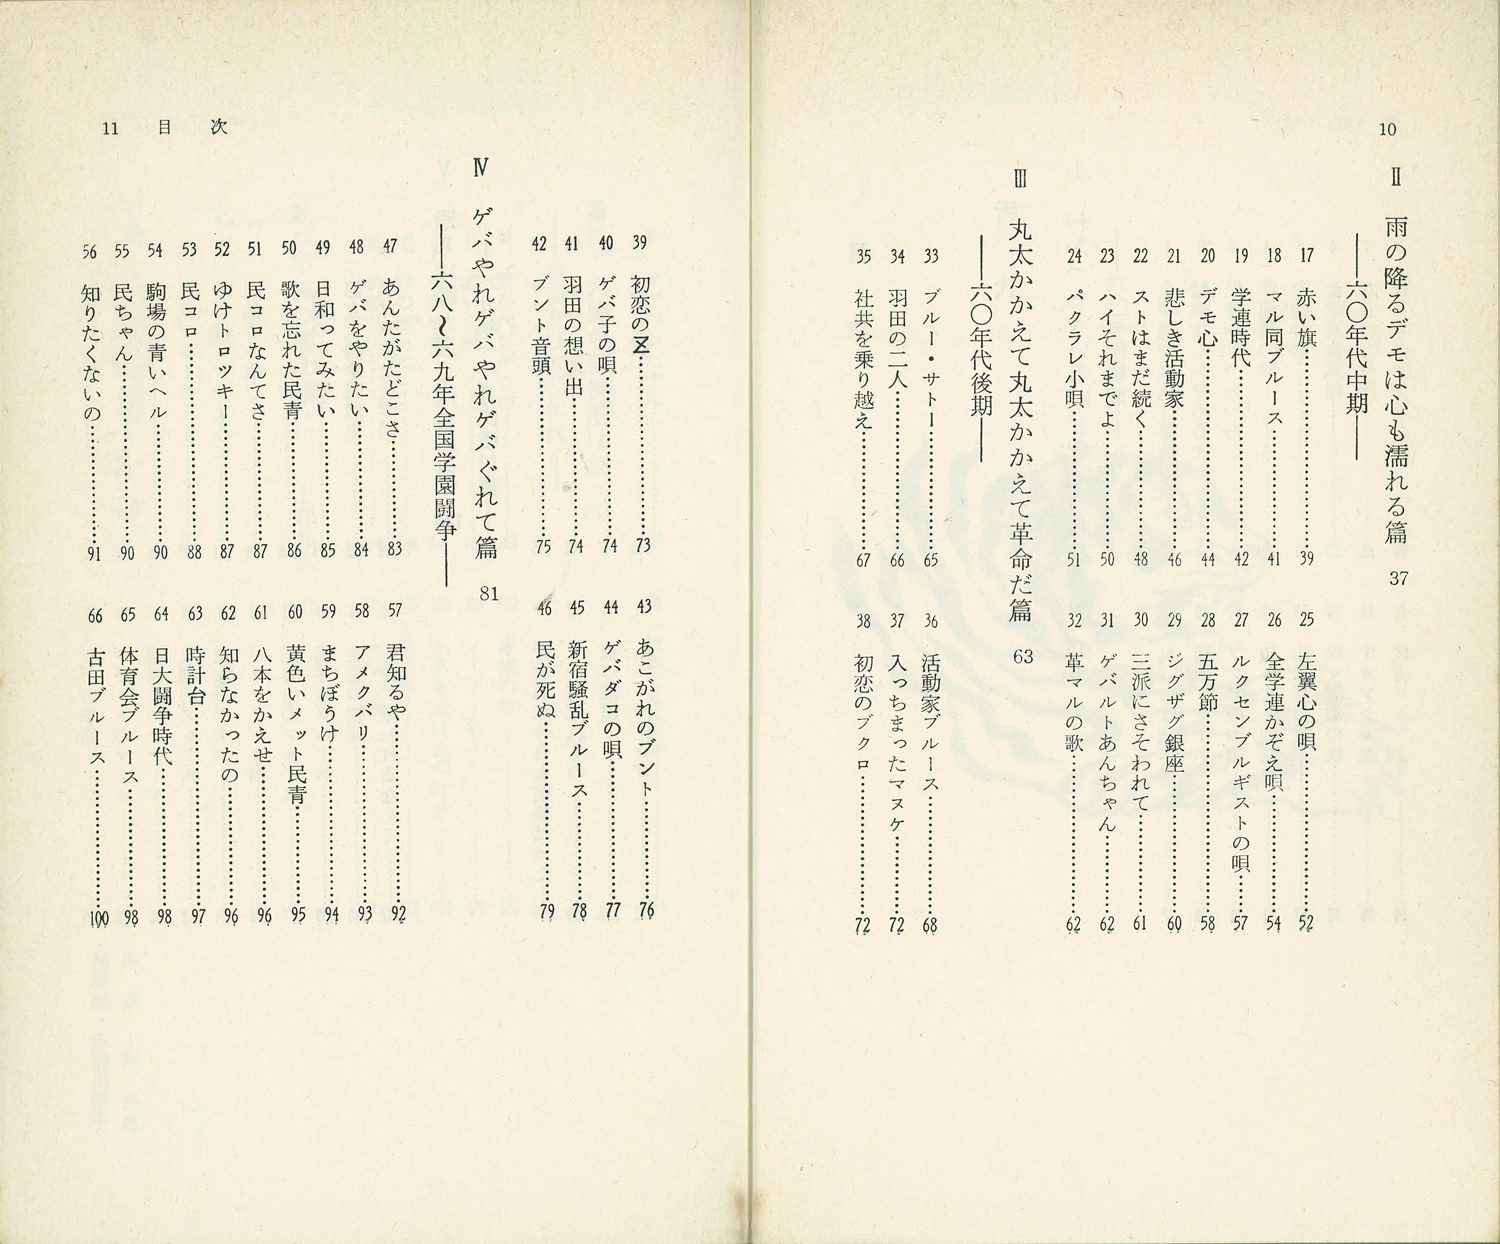 10
Ⅱ 雨の降るデモは心も濡れる篇 37
――六〇年代中期――
17 赤い旗…………39
18 マル同ブルース…………41
19 学連時代…………42
20 デモ心…………44
21 悲しき活動家…………46
22 ストはまだ続く…………48
23 ハイそれまでよ…………50
24 パクラレ小唄…………51
25 左翼心の唄…………52
26 全学連かぞえ唄…………54
27 ルクセンブルギストの唄…………57
28 五万節…………58
29 ジグザグ銀座…………60
30 三派にさそわれて…………61
31 ゲバルトあんちゃん…………62
32 革マルの歌…………62
Ⅲ 丸太かかえて丸太かかえて革命だ篇 63
――六〇年代後期――
33 ブルー・サトー…………65
34 羽田の二人…………66
35 社共を乗り越え…………67
36 活動家ブルース…………68
37 入っちまったマヌケ…………72
38 初恋のブクロ…………72
11 目次
39 初恋のZ…………73
40 ゲバ子の唄…………74
41 羽田の想い出…………74
42 ブント音頭…………75
43 あこがれのブント…………76
44 ゲバダコの唄…………77
45 新宿騒乱ブルース…………78
46 民が死ぬ…………79
Ⅳ ゲバやれゲバやれゲバぐれて篇 81
――六八〜六九年全国学園闘争――
47 あんたがたどこさ…………83
48 ゲバをやりたい…………84
49 日和ってみたい…………85
50 歌を忘れた民青…………86
51 民コロなんてさ…………87
52 ゆけトロツキー…………87
53 民コロ…………88
54 駒場の青いヘル…………90
55 民ちゃん…………90
56 知りたくないの…………91
57 君知るや…………92
58 アメクバリ…………93
59 まちぼうけ…………94
60 黄色いメット民青…………95
61 八本をかえせ…………96
62 知らなかったの…………96
63 時計台…………97
64 日大闘争時代…………98
65 体育会ブルース…………98
66 古田ブルース…………100